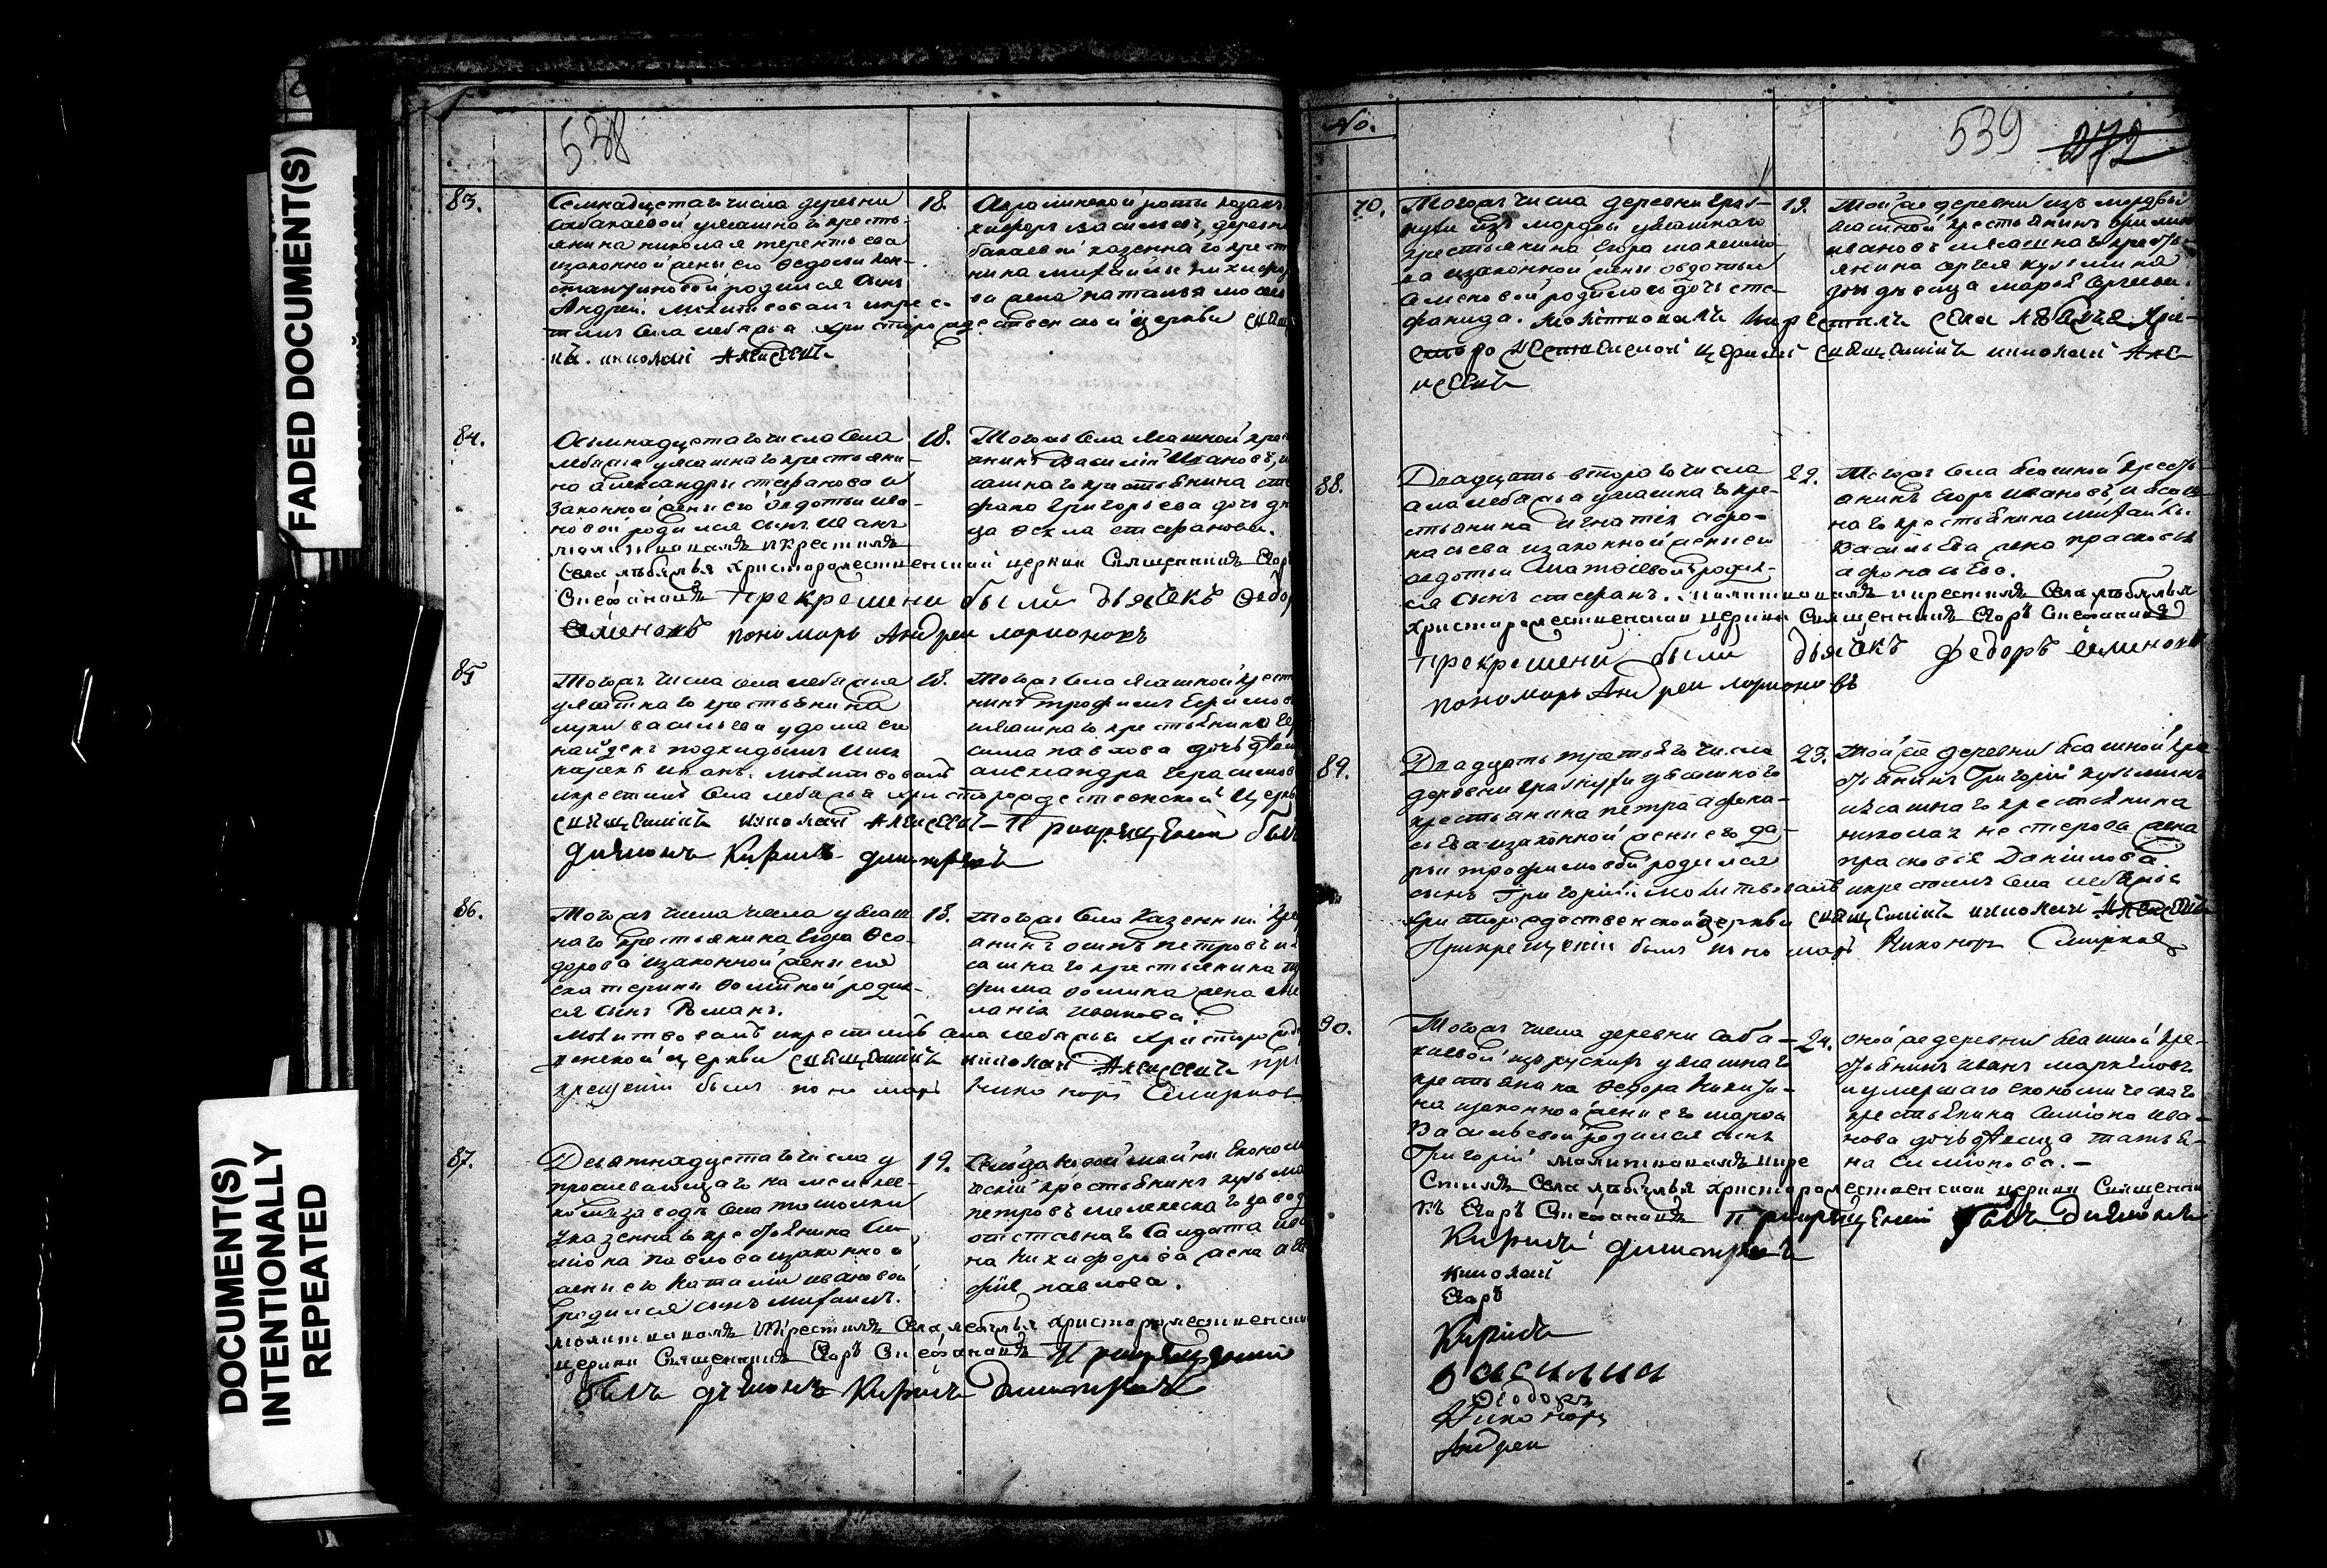 FADED DOCUMENT(S)
DOCUMENT(S)
INTENTIONALLY
REPEATED
538
83.
Семнадцетаго числа деревни
у ясашнаго кресть-
янина николая терентьева
изаконной жены его Ѳедосьи Кон-
стантиновой родился сынъ
Андрей. Молитвовалъ икре с.
тилъ села лебяжья христорождественской церкви свящ
нікъ. николай Алексеевъ
18.
роты козакъ
василіевъ, деревни
бакаевой казеннаго крест
нина михайлы никифор
ва жена наталья
84.
Осьмнадцетаго числа села
лебяжья у ясашнаго крестьяни-
на александры стефанова и
законной жены его Ѳедотьи ива-
новой родился сынъ иванъ
молитвовалъ икрестилъ
села лѣбяжья христорожественской церкви Священникъ Егоръ
Стефановъ прекрещени были дьячекъ Ѳедоръ
Семеновъ пономарь Андреи ларионовъ
18.
Тогожъ села ясашной крест
анинъ Василій Ивановъ, и
сашнаго крестьянина сте
фана григорьева дочь дѣ
ца Ѳекла стефанова.
85
Тогожъ числа села лебяжья
у ясашнаго крестьянина
луки васильева у дома его
найденъ подкидышъ имя
нарекъ иванъ. молитвовалъ
икрестилъ села лебяжья христорождественской церкви
священникъ николай Алексеевъ – При крещении былъ
дияконъ Кирилъ димитриевъ
18.
Тогожъ села ясашной крест
нинъ трофимъ Ефимов
иясашнаго крестьянина Ге
сима павлова дочь дѣви
александра герасимов
86.
Тогожъ числа села у ясаш
наго крестьянина Егора Ѳео-
дорова изаконной жены его
екатерины Ѳоминой родил-
ся сынъ Романъ.
молитвовалъ икрестилъ села лебяжья христорожд
венской церкви священникъ николай Алексеевъ при
крещеніи былъ пономарь Никоноръ Смирновъ
18.
тогожъ села казенный кре
анинъ осипъ петровъ и я
сашнаго крестьянина
фима Ѳомина жена Ме
ланія иванова.
87.
Девятнадцетаго числа у
проживающаго на мелекес-
комъ заводе села
казеннаго крестьянина Си-
міона павлова изаконной
жены его Наталіи ивановой
родился сынъ михаилъ.
молитвовалъ икрестилъ села лебяжья христорожественской
церкви Священникъ Егоръ Стефановъ При крещении
былъ дияконъ Кирилъ Димитриевъ
19.
майны Економ
ческій крестьянинъ кузьма
петровъ мелекескаго заво
отставнаго салдата ива
на Никифорова жена
павлова.
No.
539
272
70.
Тогожъ числа деревни
изъ мордвы у ясашнаго
крестьянина Егора
на изаконной жены овдотьи
Семеновой родилась дочь сте-
фанида. молитвовалъ икрестилъ села лебяжья Хри-
сторожественской церкви священникъ николай Але-
ксеевъ
19.
Тойже деревни изъ мордвы
ясашной крестьянинъ
ивановъ иясашнаго кресть-
янина сергея кузьмина
дочь девица марья Сергеева.
88.
Двадцать втораго числа
села лебяжья у ясашнаго кре-
стьянина игнатія афо-
насьева изаконной жены его
авдотьи Матѳіевой родил-
ся сынъ стефанъ. молитвовалъ икрестилъ села лѣбяжья
христорожественской церкви Священникъ Егоръ Стефановъ
прекрещени были дьячекъ федоръ семеновъ
пономарь Андреи ларионовъ
22.
Тогожъ села ясашной кресть-
анинъ Егоръ ивановъ, иясаш
наго крестьянина михайлы
васильева жена прасковья
афонасьева.
89.
Двадцать третьяго числа
деревни у ясашнаго
крестьянина петра афона-
сьева изаконной жены его да-
рьи трофимовой родился
сынъ Григорій. молитвовалъ икрестилъ села лебяжья
христорождественской церкви священникъ николай Алексеевъ
При крещеніи былъ пономарь Никоноръ Смирновъ
23.
Тойже деревни ясашной кре-
стьянинъ Григорій кузьминъ
иясашнаго крестьянина
николая нестерова жена
прасковья Даніилова.
90.
Тогожъ числа деревни Саба-
каевой изъ рускихъ у ясашнаго
крестьянина Ѳедора Никити-
на изаконной жены его марфы
Васильевой родился сынъ
Григорій молитвовалъ икре
стилъ села лѣбяжья христорожественской церкви Священни
къ Егоръ Стефановъ При крещении былъ дияконъ
Кирилъ димитриевъ
24.
оной же деревни ясашной кре-
стьянинъ иванъ маркеловъ
иумершаго економическаго
крестьянина Симіона ива-
нова дочь девица татья-
на симіонова.–
николай
Егоръ
Кирилъ
василии
Ѳеодоръ
Никоноръ
Андреи